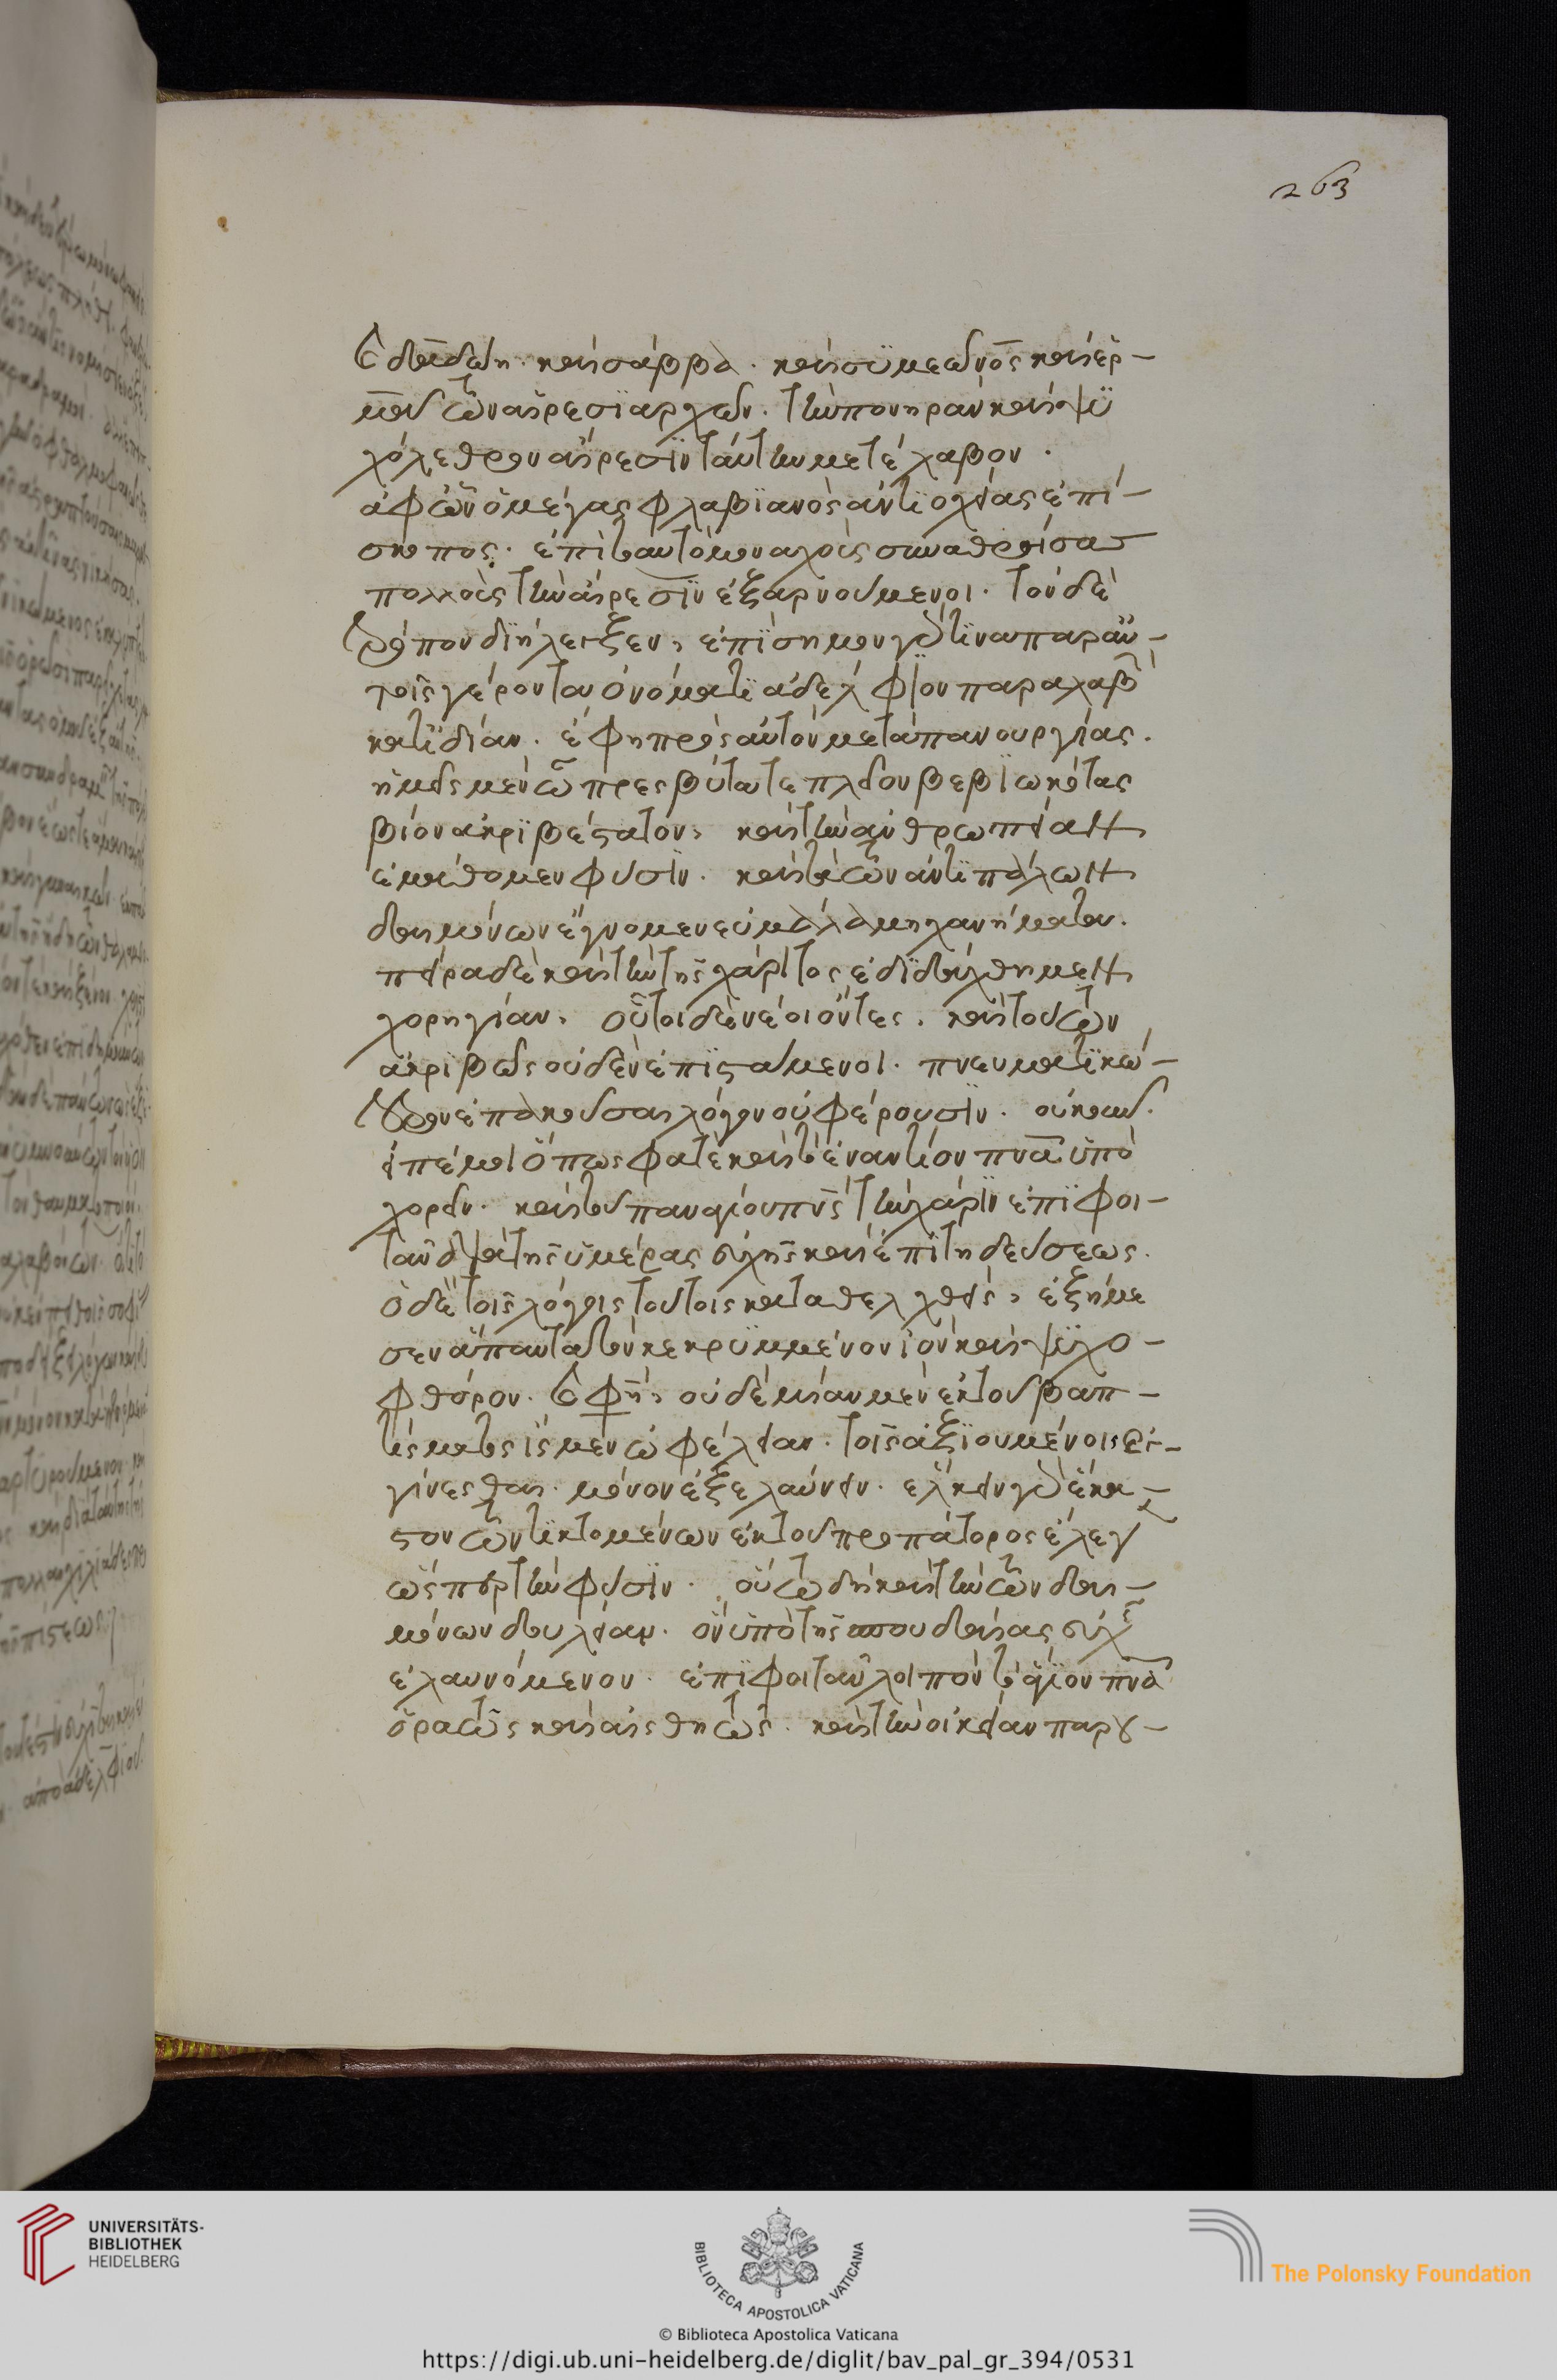 263
ἐδαδώη. καὶ σάββα. καὶ συμεώνος καὶ ἑρ-
μᾶ τῶν αἱρεσιαρχῶν. τὴν πονηρὰν καὶ ψυ
χόλεθρον αἵρεσιν ταύτην μετέλαβον.
ἀφ ὧν ὁ μέγας φλαβιανὸς ἀντιοχείας ἐπί-
σκοπος. ἐπὶ τὸ αὐτὸ μοναχοὺς συναθροίσας
πολλοὺς τὴν αἵρεσιν ἐξαρνούμενοι. τοῦδε
τρόπου διήλεγξεν, ἐπίσημον γάρ τινα παρ αὐ-
τοῖς γέροντα ὀνόματι ἀδελφιον παραλαβ
κατιδίαν. ἔφη πρὸς αὐτὸν μετὰ πανουργίας.
ἡμεῖς μὲν ὦ πρεσβύτατε πλεῖον βεβιωκότας
βίον ἀκριβέστατον, καὶ τὴν ἀνθρωπείαν
ἐμάθομεν φύσιν. καὶ τὰ τῶν ἀντιπάλων
δαιμόνων ἔγνομεν εὖ μάλα μηχανήματα.
πείρα δὲ καὶ τὴν τῆς χάριτος ἐδιδάχθημεν
χορηγίαν, οὗτοι δὲ νέοι ὄντες. καὶ τούτων
ἀκριβῶς οὐδὲν ἐπιστάμενοι. πνευματικώ-
τρον ἐπακοῦσαι λόγον οὐ φέρουσιν. οὐκοῦν
εἰπέ μοι ὅπως φατὲ καὶ τὸ ἐναντίον πνα ὑπο
χορεῖν. καὶ τοῦ παναγίου πνς τὴν χάριν ἐπιφοι-
τᾶν διὰ τῆς ὑμέρας εὐχῆς καὶ ἐπιτηδεύσεως.
ὁ δὲ τοῖς λόγοις τούτοις καταθελχθεὶς, ἐξήμε
σεν ἅπαντα τὸν κεκρυμμένον ἰὸν καὶ ψυχο-
φθόρον. ἔφη, οὐδεμίαν μὲν ἐκ τοῦ βαπ-
τίσματος ἴσμεν ὠφέλειαν. τοῖς ἀξιουμένοις ἐγ-
γίνεσθαι. μόνον ἐξελαύνειν. ἕλκειν γὰρ ἕκα-
στον τῶν τικτομένων ἐκ τοῦ προπάτορος ἔλεγ
ὥσπερ τὴν φύσιν. οὕτω δὴ καὶ τὴν τῶν δαι-
μόνων δουλείαν. ὃν ὑπὸ τῆς σπουδαίας εὐχ
ἐλαυνόμενον. ἐπιφοιτᾶν λοιπὸν τὸ ἅγιον πνα
ὁρατῶς καὶ αἰσθητῶς. καὶ τὴν οἰκείαν παρου-
UNIVERSITÄTS-
BIBLIOTHEK
HEIDELBERG
BIBLIOTECA APOSTOLICA VATICANA
The Polonsky Foundation
© Biblioteca Apostolica Vaticana
https://digi.ub.uni-heidelberg.de/diglit/bav_pal_gr_394/0531